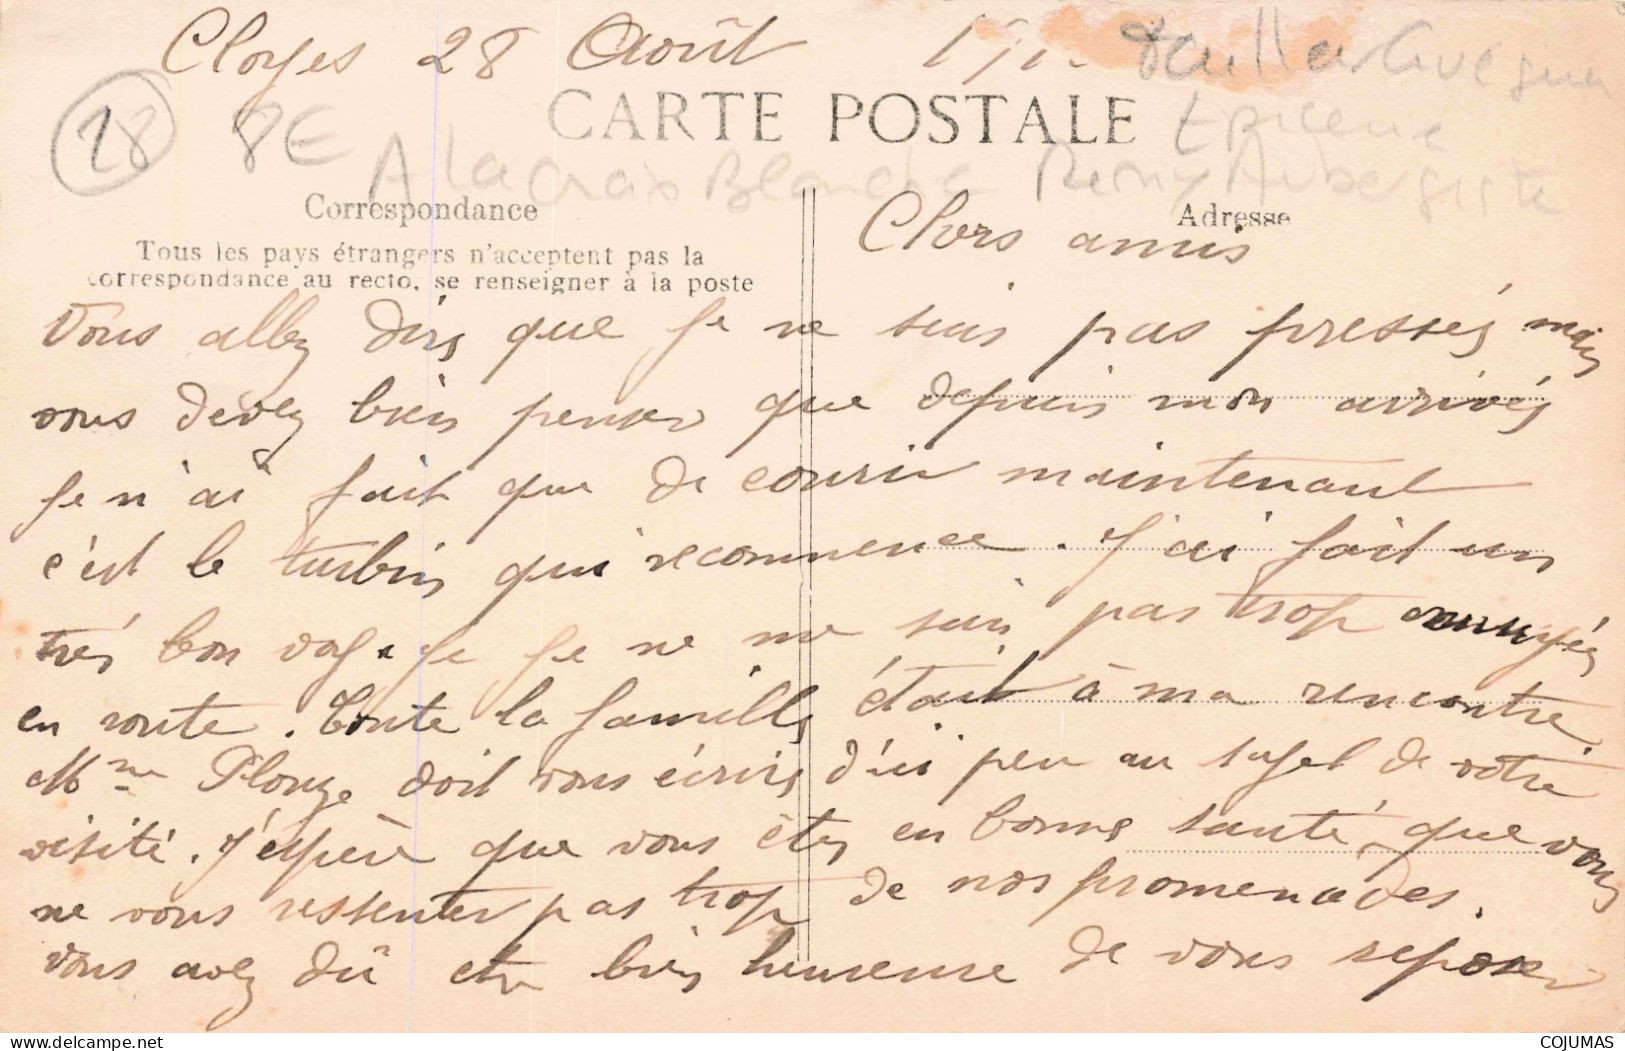 Cloyes 28 Août
28 8E
Épicerie
CARTE POSTALE
A la Croix Blanche Remy Aubergiste
Correspondance
Adresse
Tous les pays étrangers n'acceptent pas la
correspondance au recto, se renseigner à la poste
Chers amis
Vous allez dire que je ne suis pas pressés mais
vous devez bien penser que depuis mon arrivés
je n'ai fait que de courir maintenant
c'est le turbin qui recommence. J'ai fait un
très bon voyage je ne me suis pas trop ennuyés
en route. Toute la famille était à ma rencontre
Mme Plouze doit vous écrire d'ici peu au sujet de votre
visite. J'espère que vous êtes en bonne santé, que vous
ne vous ressenter pas trop de nos promenades.
Vous avez dû etre bien heureuse de vous reposer
COJUMAS